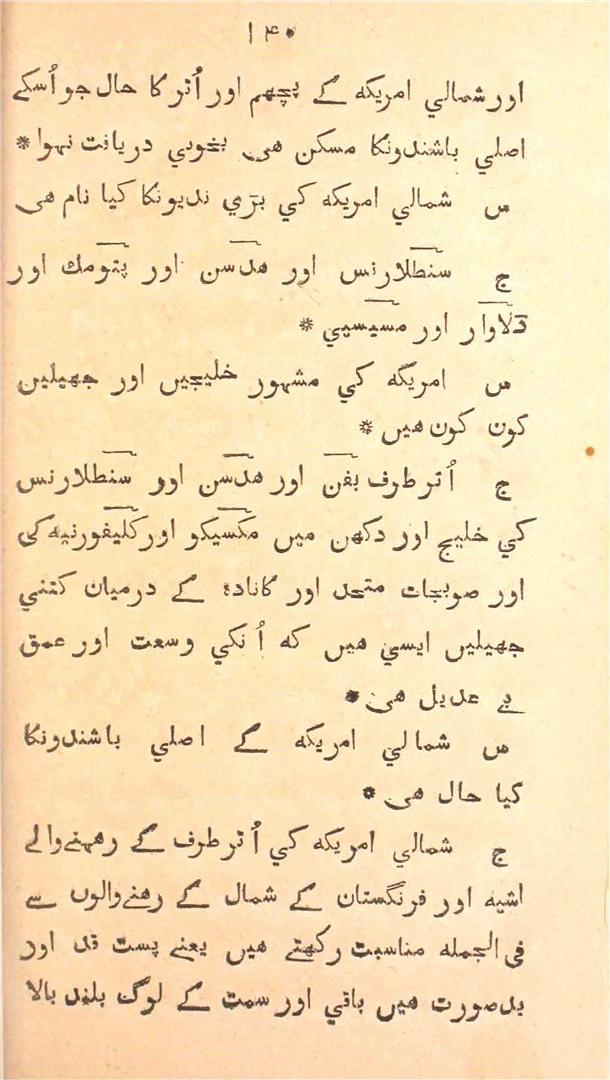 ۱۴۰
اور شمالي امریکه کے پچھم اور اُتر کا حال جو اُسکے
اصلي باشندونکا مسکن هی بخوبي دریافت نهوا *
س شمالي امریکه کي بڑي ندیونکا کیا نام هی
ج سنطلارنس اور هدسن اور پتومك اور
دلاوار اور مسیسیپي *
س امریگه کي مشهور خلیجیں اور جھیلیں
کون کون هیں *
ج اُتر طرف بفن اور هدسن اور سنطلارنس
کي خلیج اور دکھن میں مکسیکو اور کلیفورنیه کی
اور صوبجات متحد اور کانادہ کے درمیان کتني
جھیلیں ایسي هیں که اُنکي وسعت اور عمق
بے عدیل هی *
س شمالي امریکه کے اصلي باشندونکا
کیا حال هی *
ج شمالي امریکه کي اُتر طرف کے رهنےوالے
اشیه اور فرنگستان کے شمال کے رهنےوالوں سے
في الجمله مناسبت رکھتے هیں یعنے پست قد اور
بدصورت هیں باقي اور سمت کے لوگ بلند بالا